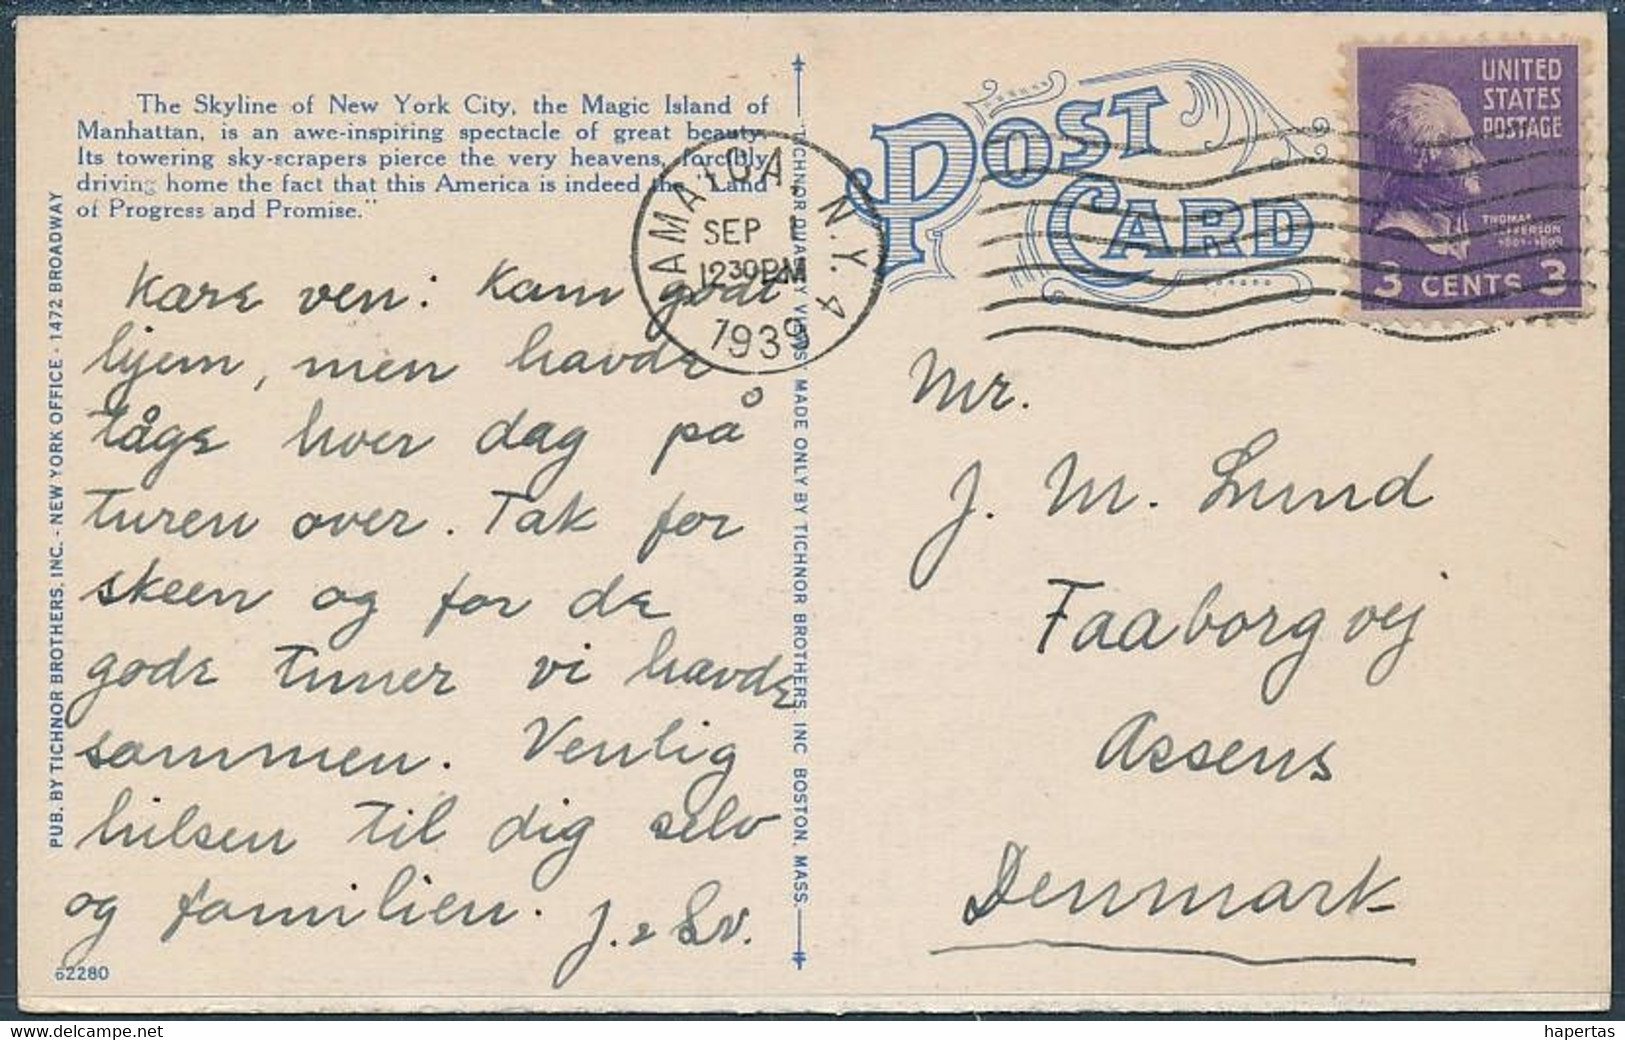 The Skyline of New York City, the Magic Island of
Manhattan, is an awe-inspiring spectacle of great beauty.
Its towering sky-scrapers pierce the very heavens, forcibly
driving home the fact that this America is indeed the "Land
of Progress and Promise."
PUB. BY TICHNOR BROTHERS, INC. - NEW YORK OFFICE - 1472 BROADWAY
Kære ven: Kom godt
hjem, men havde
tåge hver dag på
turen over. Tak for
skeen og for de
gode timer vi havde
sammen. Venlig
hilsen til dig selv
og familien.
62280
TICHNOR QUALITY VIEWS, MADE ONLY BY TICHNOR BROTHERS, INC BOSTON, MASS.
JAMAICA, N.Y. 4
SEP 1
12 30 PM
1939
POST
CARD
UNITED
STATES
POSTAGE
THOMAS
JEFFERSON
1801-1809
3 CENTS 3
Mr.
J. M. Lund
Faaborgvej
Assens
Denmark
www.delcampe.net
hapertas